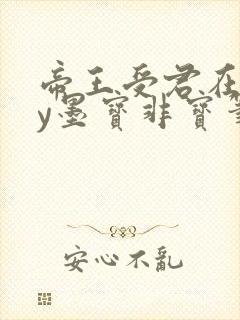 帝王受君在
y墨寶非寶筆
安心不亂